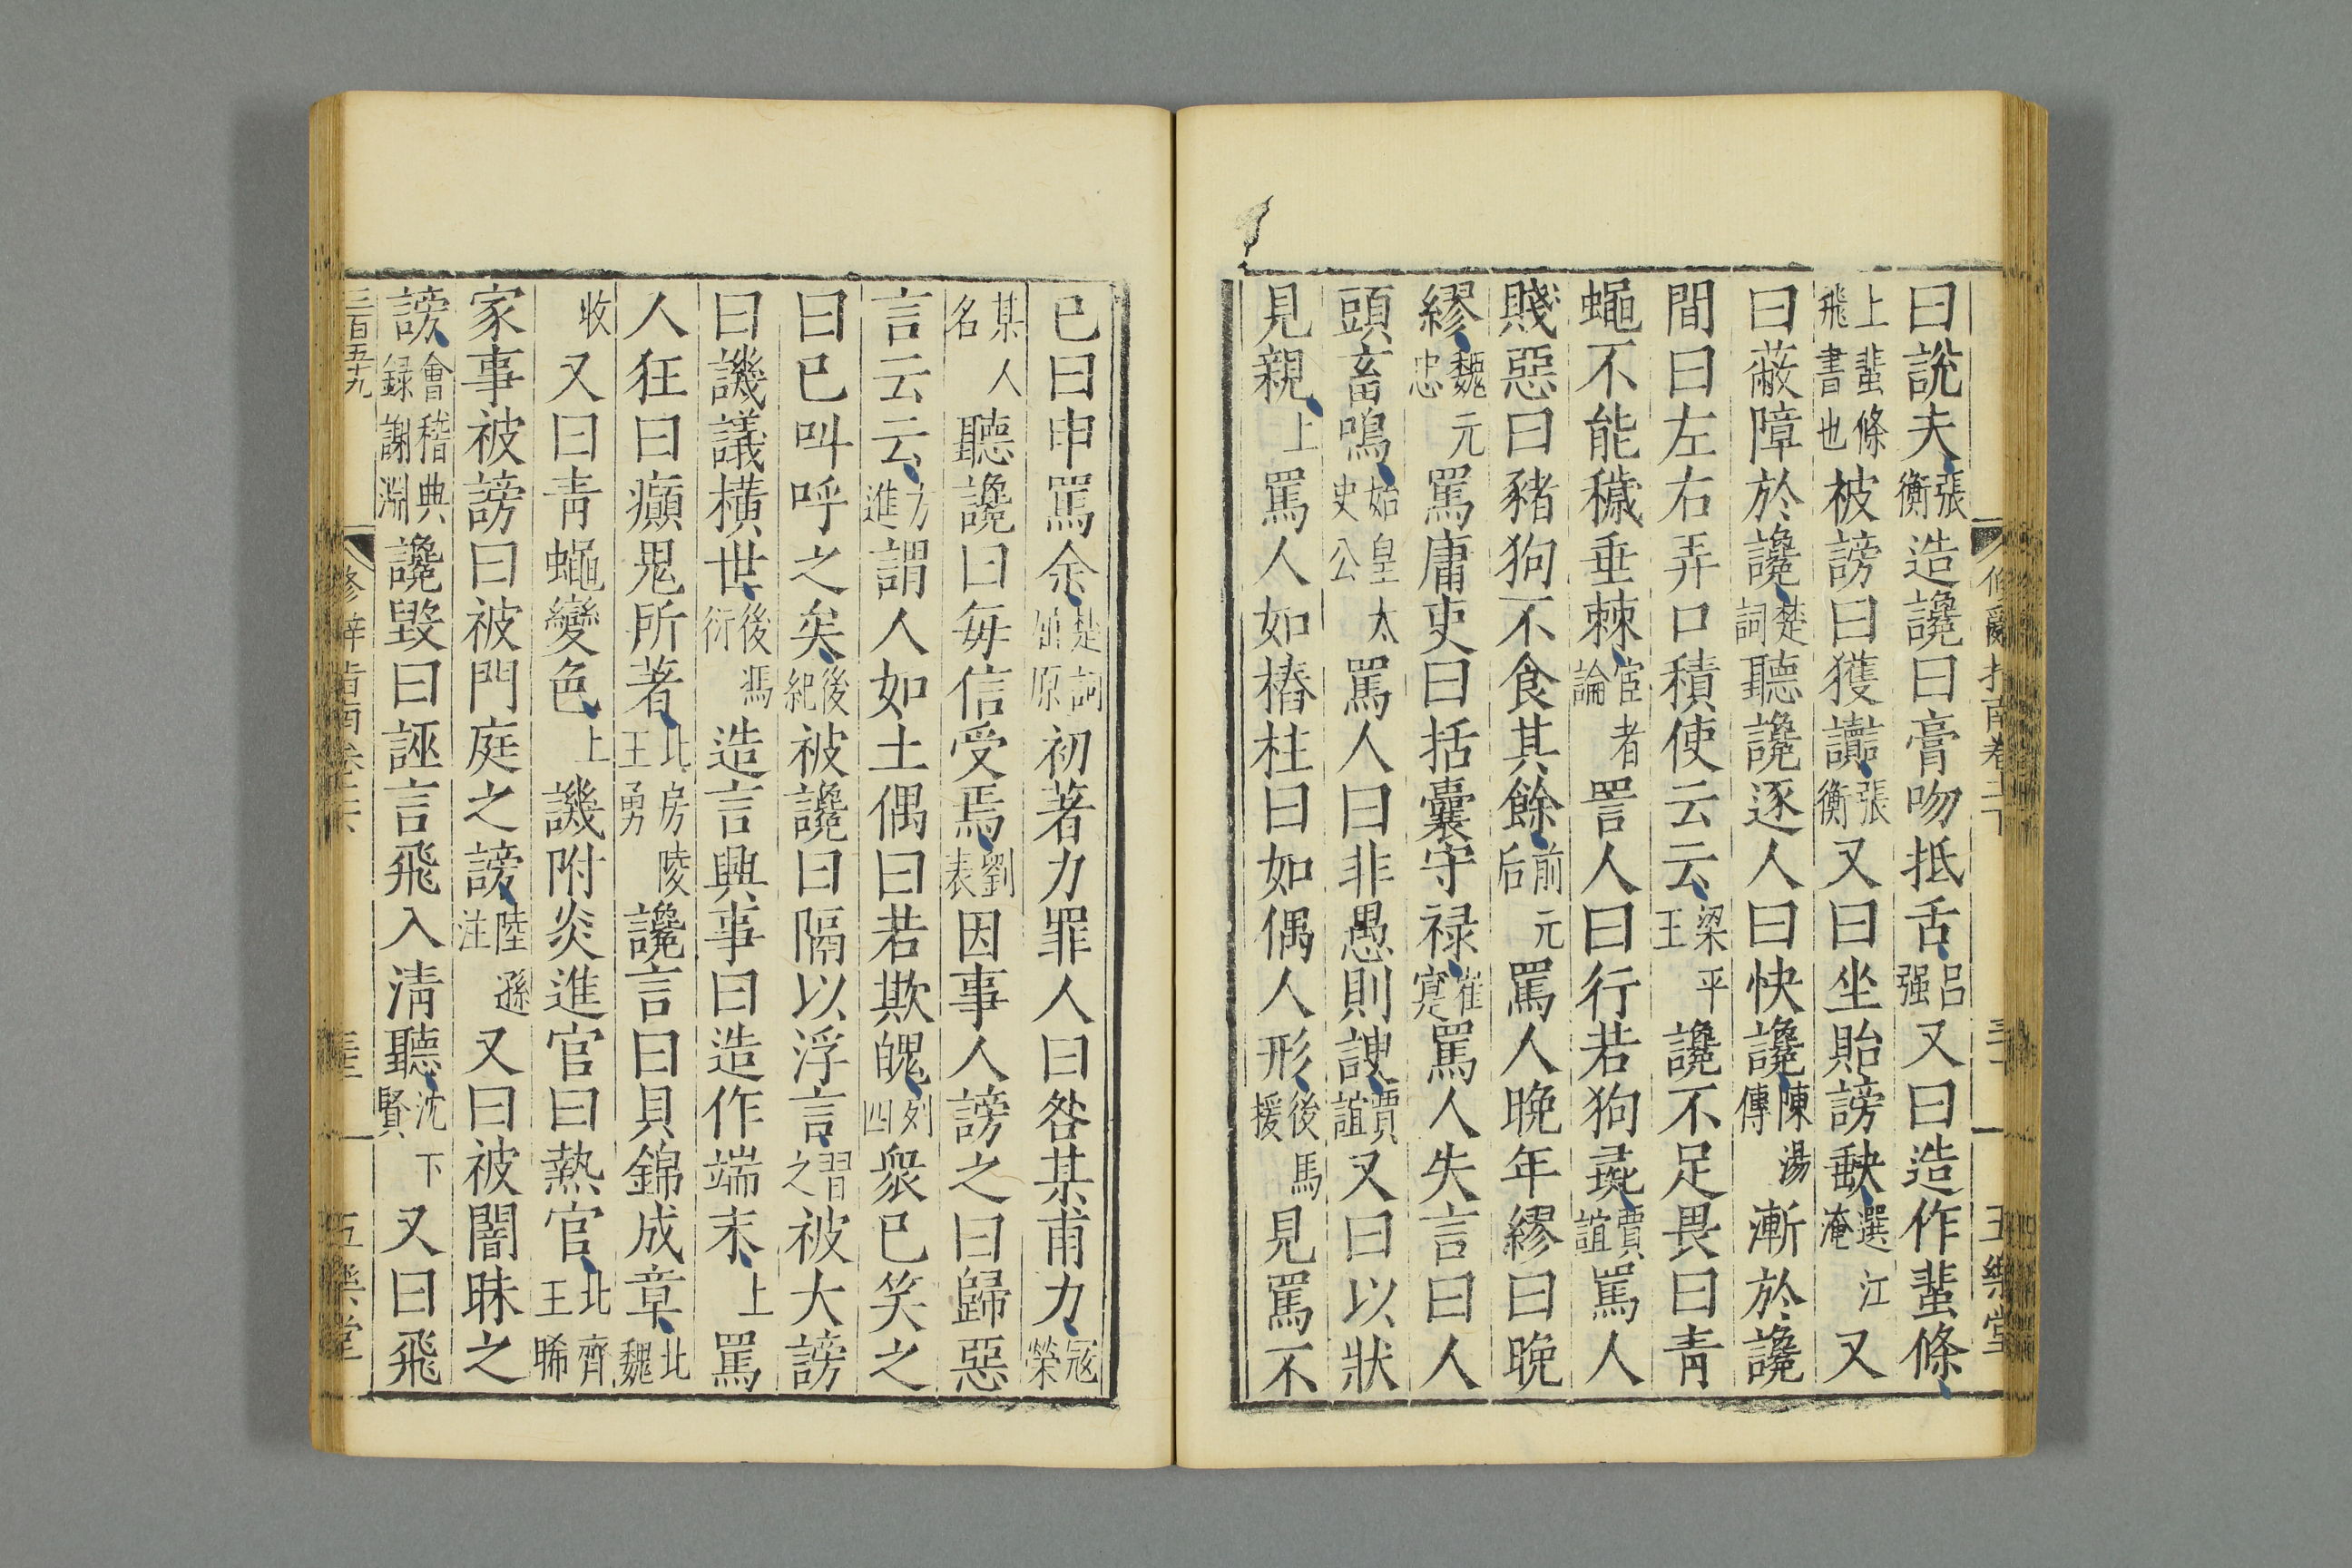 修辭指南卷 五樂堂
曰說夫張衡造讒曰膏吻抵舌呂强又曰造作蜚條
上蜚條飛書也被謗曰獲讟張衡又曰坐貽謗缺選江淹又
曰蔽障於讒楚詞聽讒逐人曰快讒陳湯傳漸於讒
間曰左右弄口積使云云梁平王讒不足畏曰青
蠅不能穢垂棘宦者論詈人曰行若狗彘賈誼罵人
賤惡曰豬狗不食其餘前元后罵人晚年繆曰晚
繆魏元忠罵庸吏曰括囊守禄崔寔罵人失言曰人
頭畜鳴始皇太史公罵人曰非愚則諛賈誼又曰以狀
見親上罵人如樁柱曰如偶人形後馬援見罵不
已曰申罵余楚詞屈原初著力罪人曰咎某甫力冦榮
某人名聽讒曰毎信受焉劉表因事人謗之曰歸惡
言云云方進謂人如土偶曰若欺魄列四衆已笑之
曰已叫呼之矣後紀被讒曰隔以浮言習之被大謗
曰譏議横世後馮衍造言興事曰造作端末上罵
人狂曰癲鬼所著北房陵王勇讒言曰貝錦成章北魏
收又曰青蠅變色上譏附炎進官曰熱官北齊王晞
家事被謗曰被門庭之謗陸遜注又曰被闇昧之
謗會稽典録謝淵讒毀曰誣言飛入清聽沈下賢又曰飛
三百五十九 修辭指南卷 五樂堂